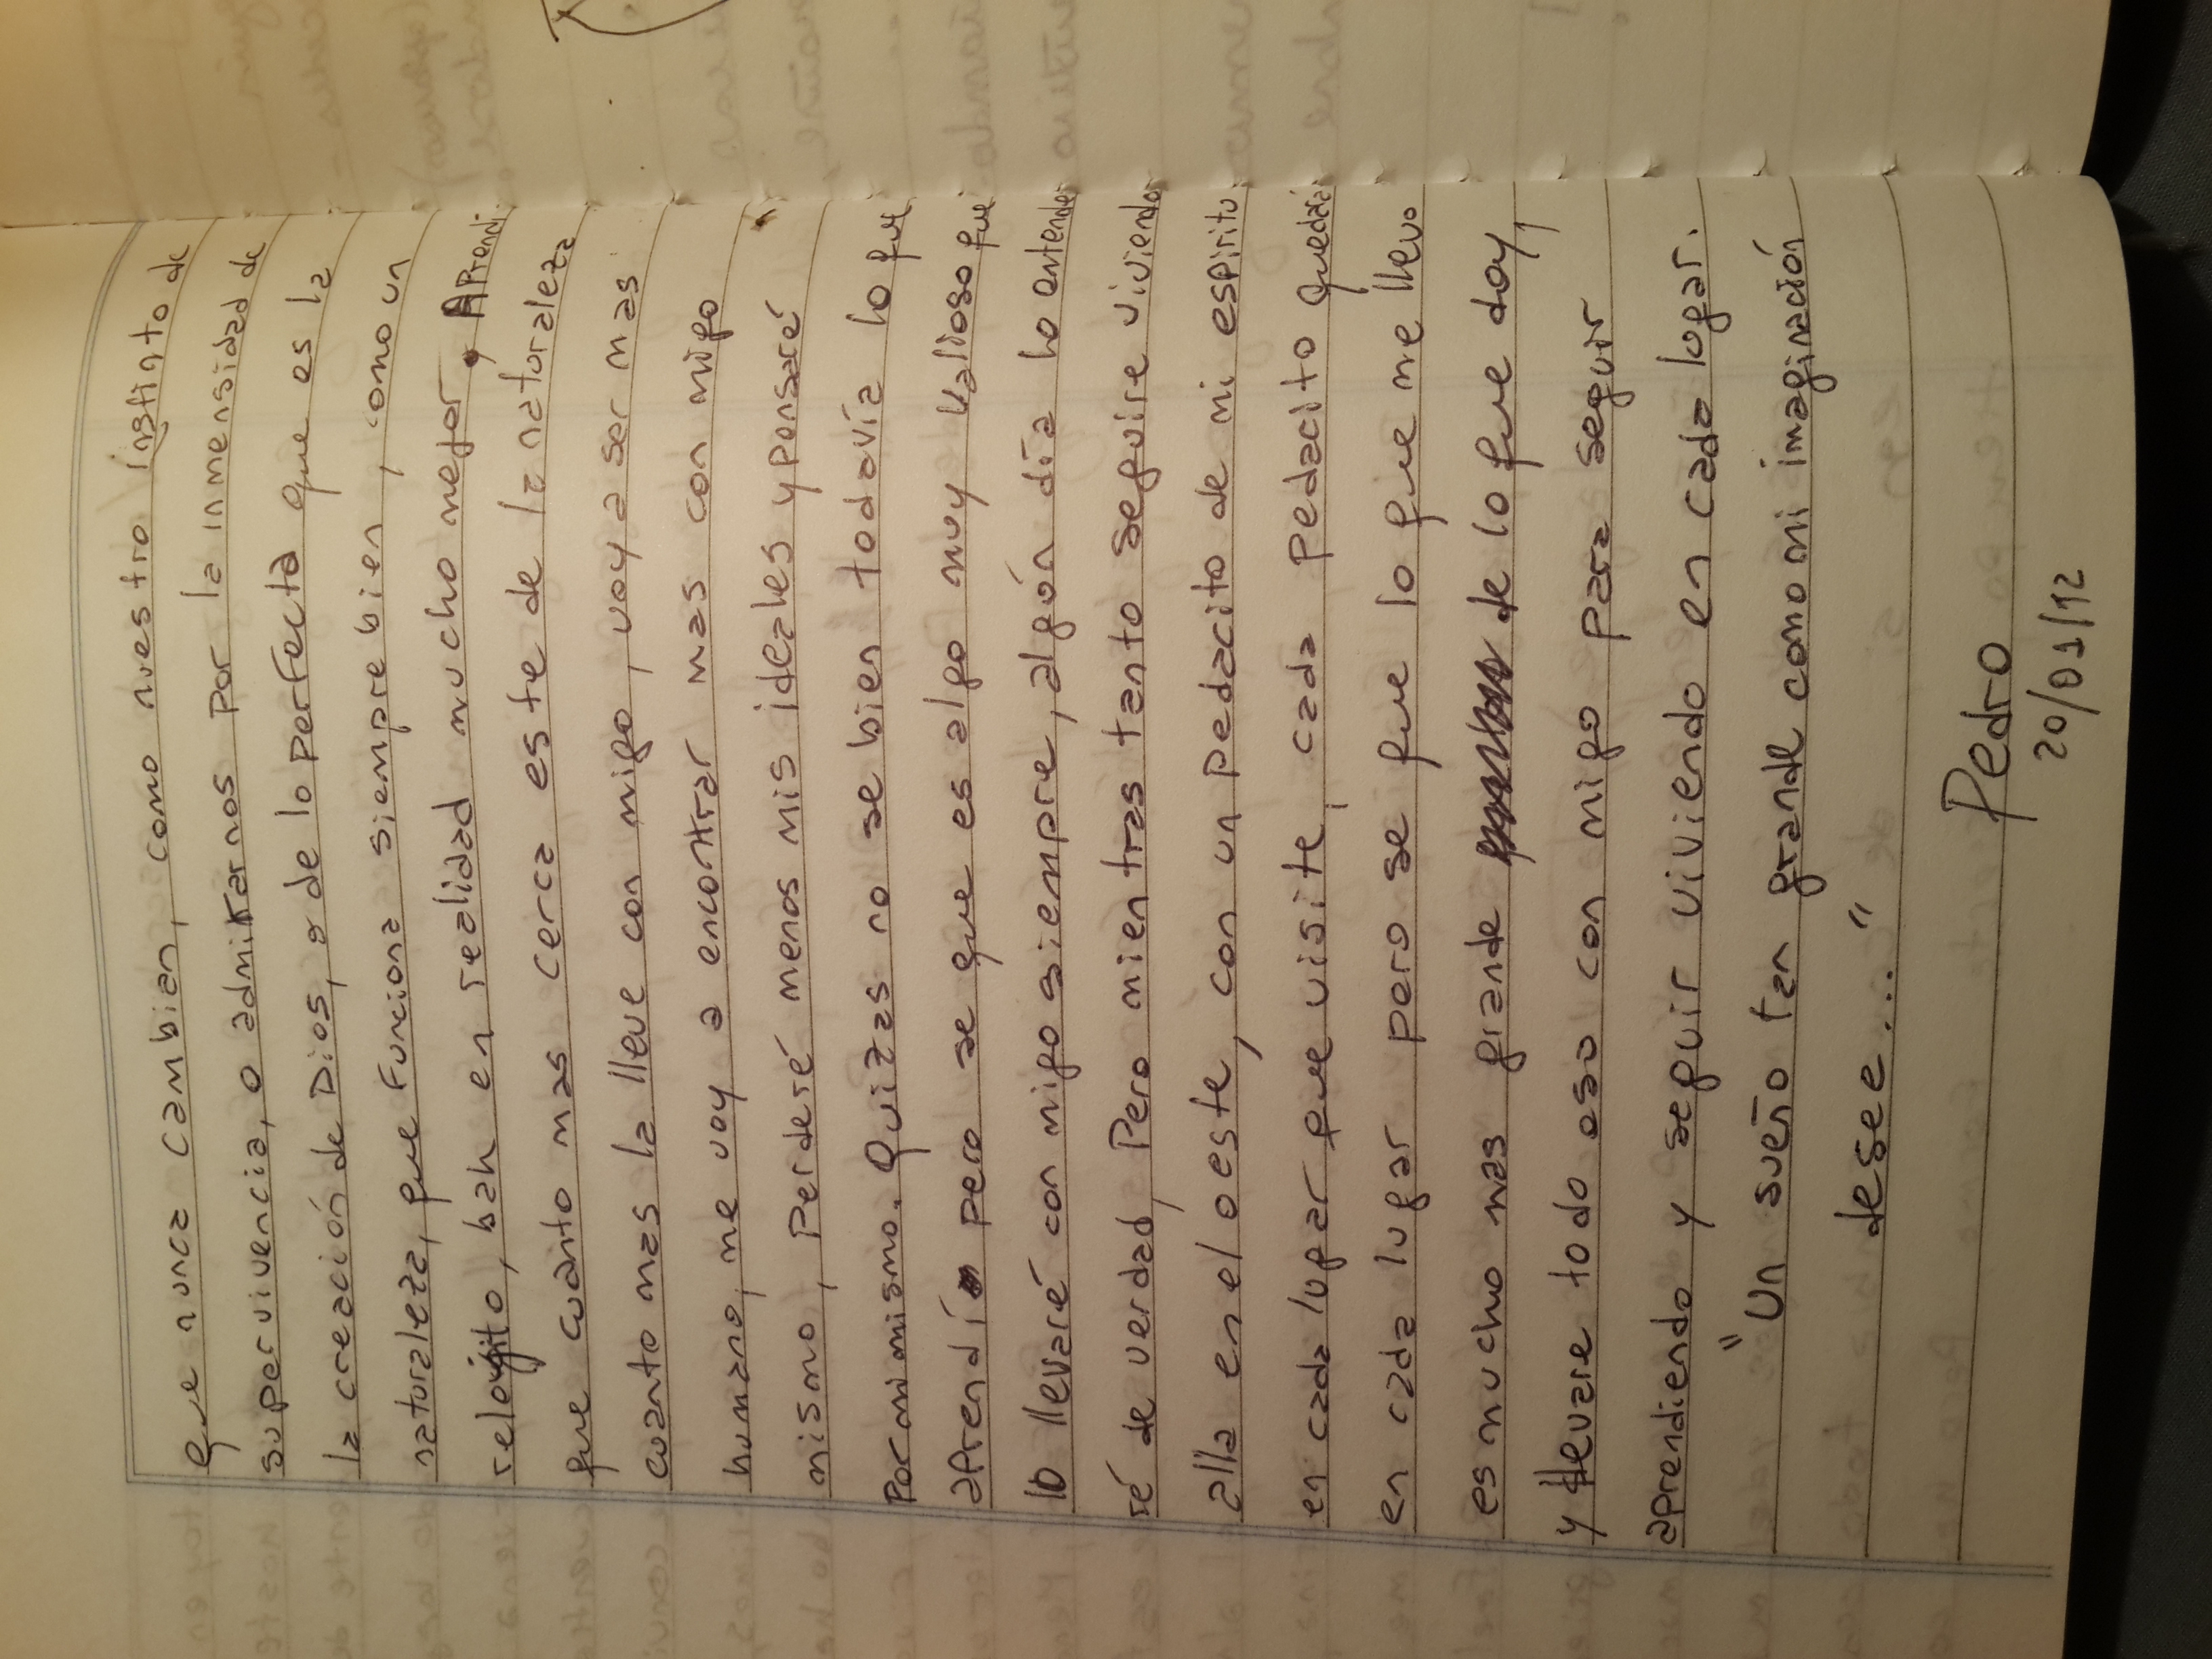 que nunca cambian, como nuestro instinto de
supervivencia, o admirarnos por la inmensidad de
la creación de Dios, o de lo perfecta que es la
naturaleza, que funciona siempre bien, como un
relojito, bah en realidad mucho mejor. Aprendí
que cuanto mas cerca este de la naturaleza
cuanto mas la lleve con migo, voy a ser mas
humano, me voy a encontrar mas con migo
mismo, perderé menos mis ideales y pensaré
por mi mismo. Quizas no se bien todavía lo que
aprendí pero se que es algo muy valioso que
lo llevaré con migo siempre, algún día lo entende-
ré de verdad, Pero mientras tanto seguire viviendo
alla en el oeste, con un pedacito de mi espiritu
en cada lugar que visite, cada pedacito quedará
en cada lugar pero se que lo que me llevo
es mucho mas grande de lo que doy,
y llevare todo eso con migo para seguir
aprendiendo y seguir viviendo en cada lugar.
"Un sueño tan grande como mi imaginación
desee..."
Pedro
20/01/12